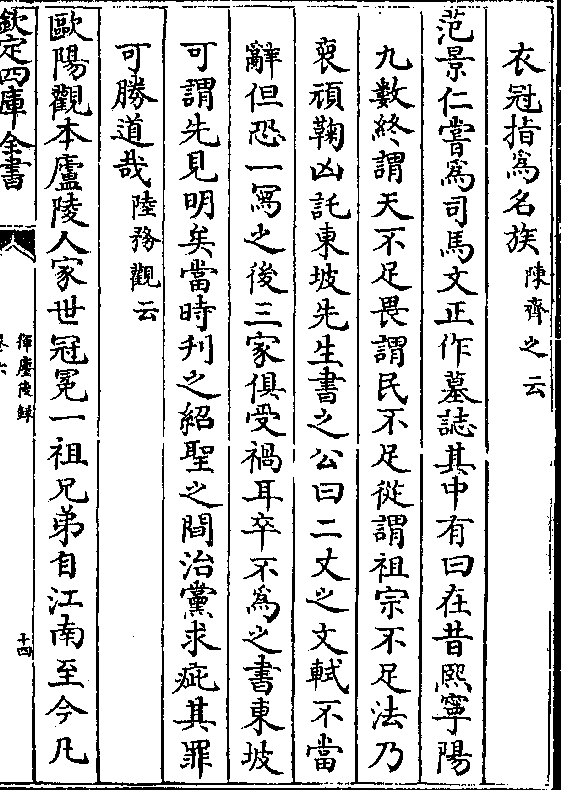 衣冠指為名族陳齊之云
范景仁嘗爲司馬文正作墓誌其中有曰在昔熙寧陽
九數終謂天不足畏謂民不足從謂祖宗不足法乃
裒頑鞠凶託東坡先生書之公曰二丈之文軾不當
辭但恐一寫之後三家俱受禍耳卒不爲之書東坡
可謂先見明矣當時刋之紹聖之間治黨求疵其罪
可勝道哉陸務觀云
歐陽觀本廬陵人家世冠冕一祖兄弟自江南至今凡
欽定四庫全書
揮麈後録
卷六
十四